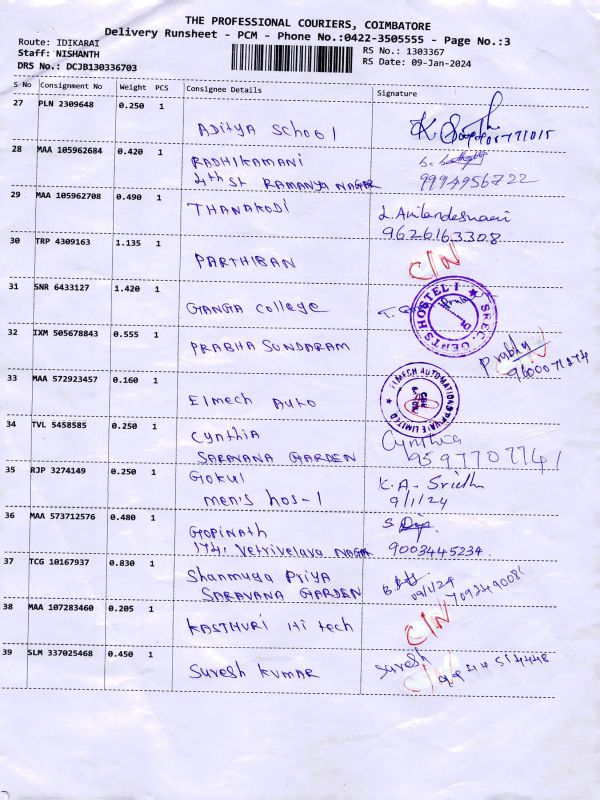 THE PROFESSIONAL COURIERS, COIMBATORE
Delivery Runsheet - PCM - Phone No.:0422-3505555 - Page No.:3
Route: IDIKARAI
Staff: NISHANTH
RS No.: 1303367
DRS No.: DCJB130336703
RS Date: 09-Jan-2024
S No Consignment No Weight PCS Consignee Details Signature
27 PLN 2309648 0.250 1
ADITYA School
28 MAA 105962684 0.420 1
RADHIKAMANI
4th St RAMANYA NAGAR 9994956722
29 MAA 105962708 0.490 1
THANAKODI
9626163308
30 TRP 4309163 1.135 1
PARTHIBAN C/N
31 SNR 6433127 1.420 1
GANGA College
SREC. GENTS HOSTEL-I
32 IXM 505678843 0.555 1
PRABHA SUNDARAM
Prabhu
33 MAA 572923457 0.160 1
Elmech Auto
ELMECH AUTOMATION PRIVATE LIMITED
34 TVL 5458585 0.250 1
Cynthia Cynthia
SARAVANA GARDEN 9597707741
35 RJP 3274149 0.250 1
Gokul K.A-
men's hos-1 9/1/24
36 MAA 573712576 0.480 1
GOPINATH
174, Vetrivelava NAGAR 9003445234
37 TCG 10167937 0.830 1
Shanmuga Priya
SARAVANA GARDEN 09/1/24
38 MAA 107283460 0.205 1
KASTHURI Hi tech C/N
39 SLM 337025468 0.450 1
Suresh kumar Suresh